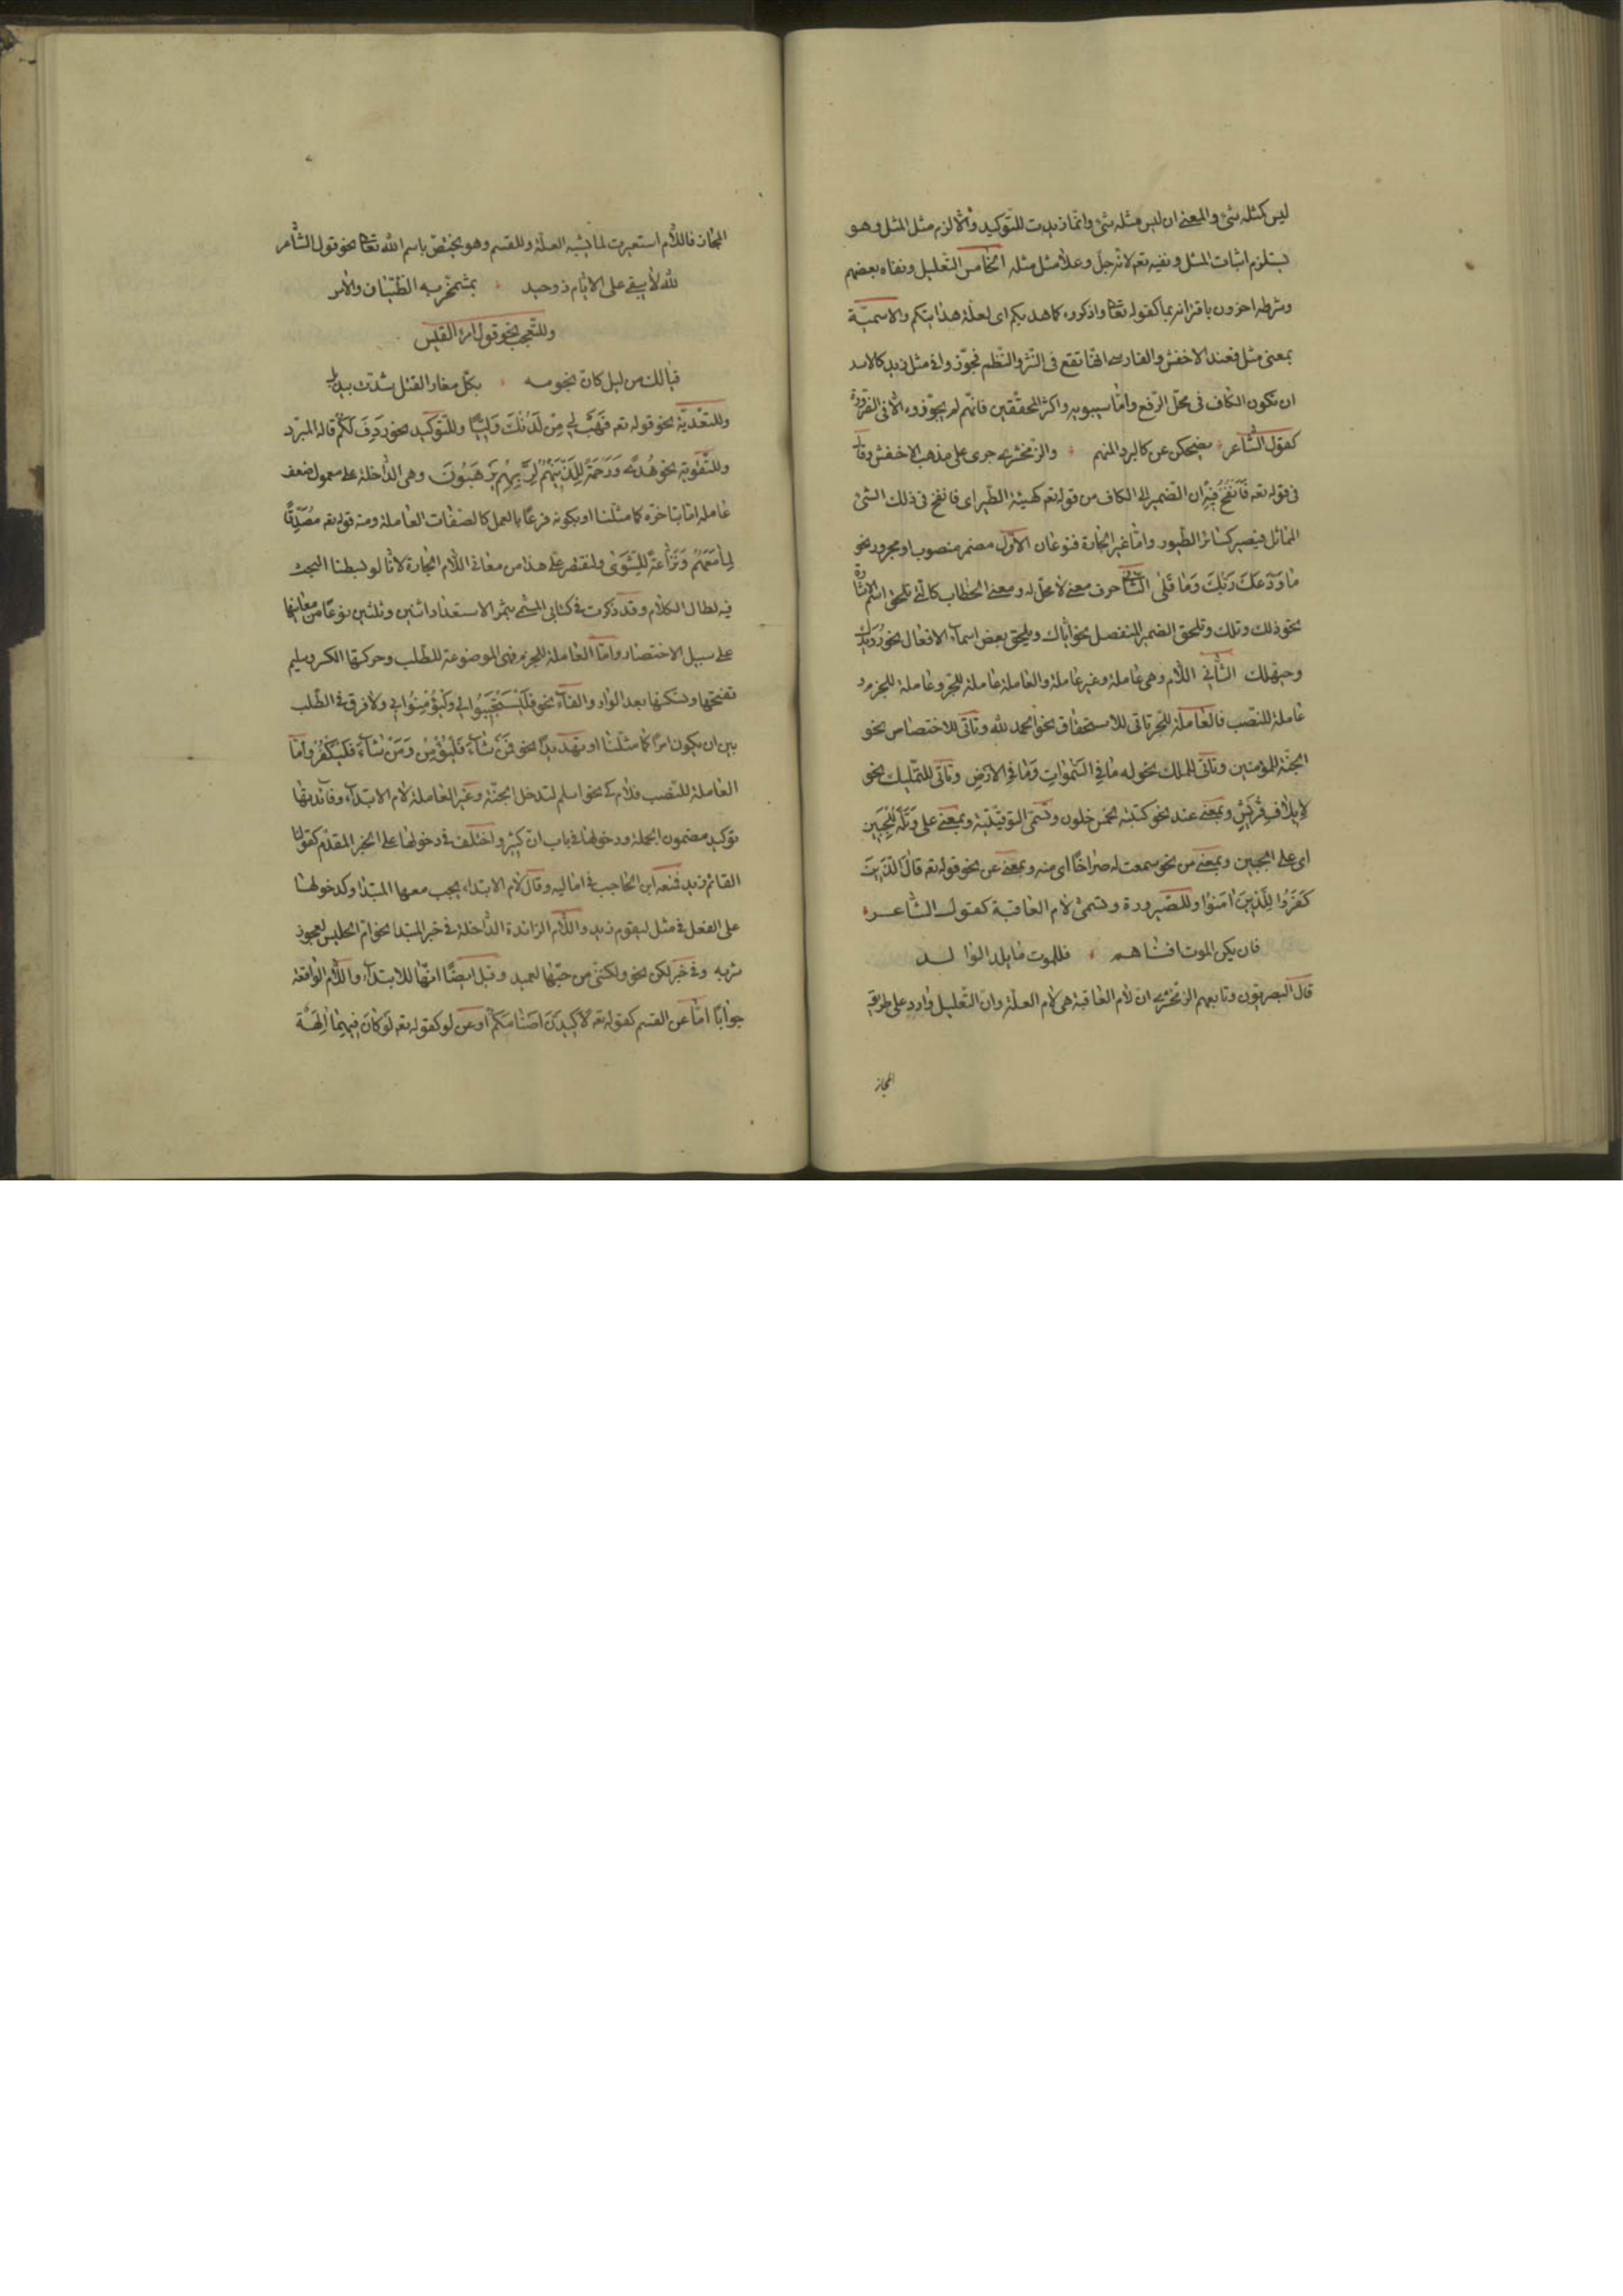 ليس كمثله شئ والمعنى ان ليس مثله شئ وانما زيدت للتوكيد والا لزم مثل المثل وهو
يستلزم اثبات المثل ونفيه تعه لانه جل وعلا مثل مثله الخامس التعليل ونفاه بعضهم
وشرطه اخرون باقترانه بما كقوله تعالى واذكروه كما هديكم اى لعلة هدايتكم والاسمية
بمعنى مثل فعند الاخفش والفارسى انها تقع فى النثر والنظم فجوزوا فى مثل زيد كالاسد
ان تكون الكاف فى محل الرفع واما سيبويه واكثر المحققين فانهم لم يجوزوه الا فى الضرورة
كقول الشاعر يضحكن عن كالبرد المنهم والزمخشرى جرى على مذهب الاخفش وقال
فى قوله تعه فَاَنْفُخُ فِيهِ ان الضمير الى الكاف من قوله تعه كهيئة الطير اى فانفخ فى ذلك الشئ
المماثل فيصير كسائر الطيور واما غير الجارة فنوعان الاول مضمر منصوب او مجرور نحو
مَا وَدَّعَكَ رَبُّكَ وَمَا قَلٰى الثانى حرف معنى لا محل له ومعنى الخطاب كالتى تلحق اسم الاشارة
نحو ذلك وتلك وتلحق الضمير المنفصل نحو اياك ويلحق بعض اسماء الافعال نحو رُوَيْدَكَ
وحيهلك الثانى اللام وهى عاملة وغير عاملة والعاملة عاملة للجر وعاملة للجزم و
عاملة للنصب فالعاملة للجر تاتى للاستحقاق نحو الحمد لله وتاتى للاختصاص نحو
الجنة للمؤمنين وتاتى للملك نحو له مَا فِى السَّمٰوَاتِ وَمَا فِى الاَرْضِ وتاتى للتمليك نحو
لِاِيلَافِ قُرَيْشٍ وبمعنى عند نحو كتبته لخمس خلون وتسمى التوقيتية وبمعنى على وَتَلَّهُ لِلْجَبِينِ
اى على الجبين وبمعنى من نحو سمعت له صراخًا اى منه وبمعنى عن نحو قوله تعه قالَ الَّذِينَ
كَفَرُوا لِلَّذِينَ اٰمَنُوا وللصيرورة وتسمى لام العاقبة كقول الشاعر
فان يكن الموت افناهم فللموت ما يلد الوالد
قال البصريون وتابعهم الزمخشرى ان لام العاقبة هى لام العلة وان التعليل وارد على طريق
المجاز
المجاز فاللام استعيرت لما يشبه العلة وللقسم وهو يختص باسم الله تعالى نحو قول الشاعر
لله لا يبقى على الايام ذو حيد بمشمخر به الظيان والاس
وللتعجب نحو قول امرء القيس
فيا لك من ليل كان نجومه بكل مغار الفتل شدت بيذبل
وللتعدية نحو قوله تعه فَهَبْ لِى مِنْ لَدُنْكَ وَلِيًّا وللتوكيد نحو رَدِفَ لَكُمْ قاله المبرد
وللتقوية نحو هُدًى وَرَحْمَةً لِلَّذِينَهُمْ لِرَبِّهِمْ يَرْهَبُونَ وهى الداخلة على معمول ضعف
عامله اما بتاخره كما مثلنا او بكونه فرعًا بالعمل كالصفات العاملة ومنه قوله تعه مُصَدِّقًا
لِمَا مَعَهُمْ وَنَزَّاعَةً لِلشَّوٰى ولنقتصر على هذا من معانى اللام الجارة لانا لو بسطنا البحث
فيه لطال الكلام وقد ذكرت فى كتابى المسمى بثمر الاستعداد اثنين وثلثين نوعًا من معانيها
على سبيل الاختصار واما العاملة للجزم فهى الموضوعة للطلب وحركتها الكسر وسليم
تفتحها وتسكنها بعد الواو والفاء نحو فَلْيَسْتَجِيبُوا لِى وَلْيُؤْمِنُوا بِى ولا فرق فى الطلب
بين ان يكون امرًا كما مثلنا او تهديدًا نحو فَمَنْ شَاءَ فَلْيُؤْمِنْ وَمَنْ شَاءَ فَلْيَكْفُرْ واما
العاملة للنصب فلام كى نحو اسلم لتدخل الجنة وغير العاملة لام الابتداء وفائدتها
توكيد مضمون الجملة ودخولها فى باب ان كثير واختلف فى دخولها على الخبر المقدم كقولنا
القائم زيد فمنعه ابن الحاجب فى اماليه وقال لام الابتداء يجب معها المبتدا وكدخولها
على الفعل فى مثل ليقوم زيد واللام الزائدة الداخلة فى خبر المبتدا نحو ام الحليس لعجوز
شربه وفى خبر لكن نحو ولكننى من حبها لعميد وقيل ايضًا انها للابتداء واللام الواقعة
جوابًا اما عن القسم كقوله تعه لَاَكِيدَنَّ اَصْنَامَكُمْ او عن لو كقوله تعه لَوْ كَانَ فِيهِمَا اٰلِهَةٌ